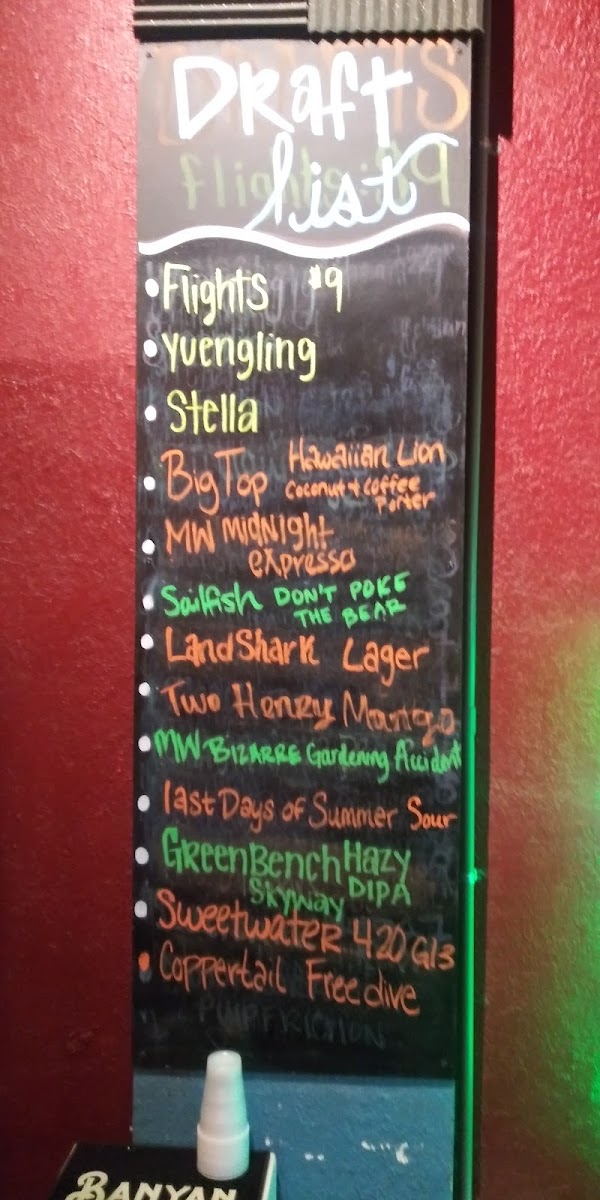 Draft
list
Flights $9
Yuengling
Stella
Big Top Hawaiian Lion
Coconut + Coffee
Porter
MW Midnight
expresso
Sailfish DON'T POKE
THE BEAR
LandShark Lager
Two Henrys Mango
MW BIZARRE Gardening Accident
last Days of Summer Sour
GreenBench Hazy
Skyway DIPA
Sweetwater 420 G13
Coppertail Freedive
PULP FRICTION
BANYAN